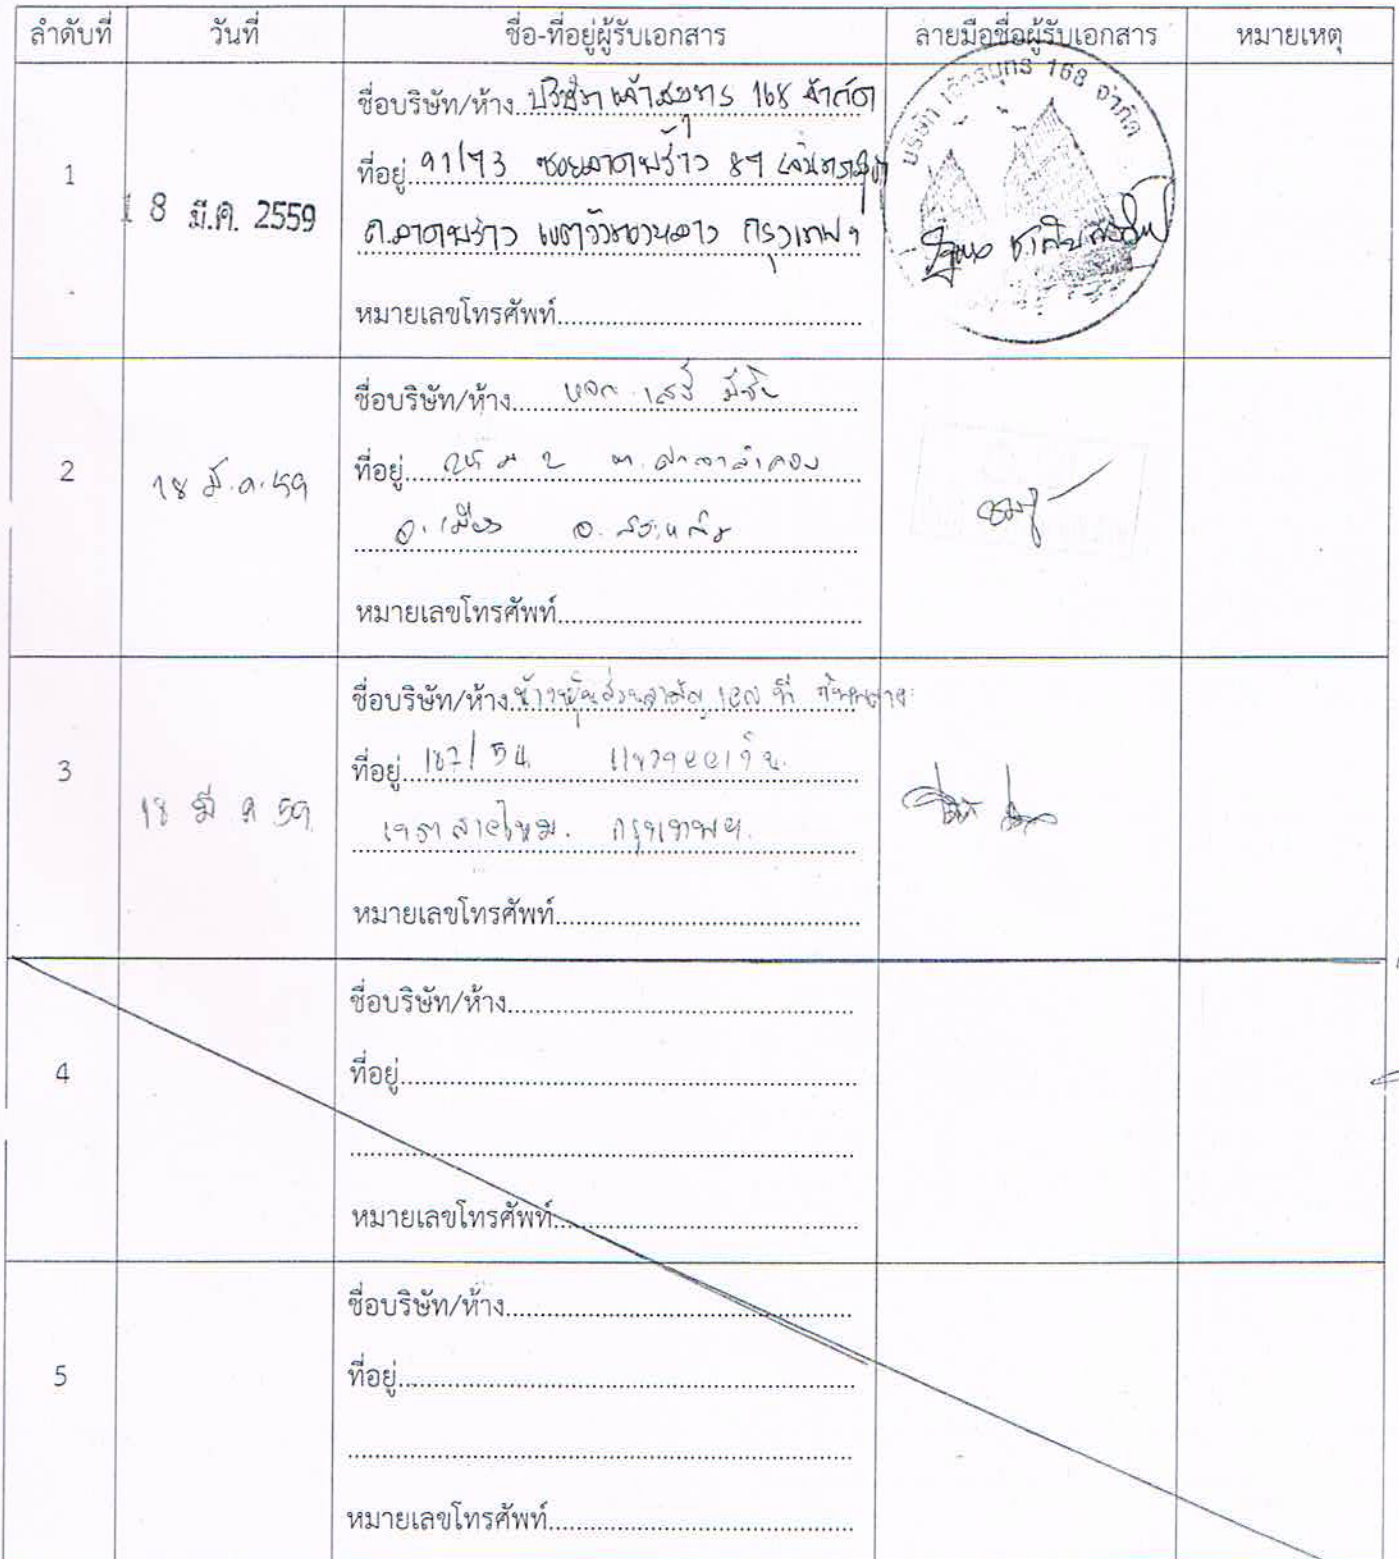 ลำดับที่ วันที่ ชื่อ-ที่อยู่ผู้รับเอกสาร ลายมือชื่อผู้รับเอกสาร หมายเหตุ
1
18 มี.ค. 2559
ชื่อบริษัท/ห้าง บริษัท เจ้าสมุทร 168 จำกัด
ที่อยู่ 91/73 ซอยลาดพร้าว 87
ถ.ลาดพร้าว เขตวังทองหลาง กรุงเทพฯ
หมายเลขโทรศัพท์
บริษัท เจ้าสมุทร 168 จำกัด
2
18 มี.ค. 59
ชื่อบริษัท/ห้าง หจก. เสรี มีชัย
ที่อยู่ ม 2 ต. ศาลาลำดวน
อ. เมือง จ. สระแก้ว
หมายเลขโทรศัพท์
3
18 มี ค 59
ชื่อบริษัท/ห้าง ห้างหุ้นส่วนสามัญ เอส ที
ที่อยู่ 187/54 แขวงออเงิน
เขต สายไหม. กรุงเทพฯ.
หมายเลขโทรศัพท์
4
ชื่อบริษัท/ห้าง
ที่อยู่
หมายเลขโทรศัพท์
5
ชื่อบริษัท/ห้าง
ที่อยู่
หมายเลขโทรศัพท์